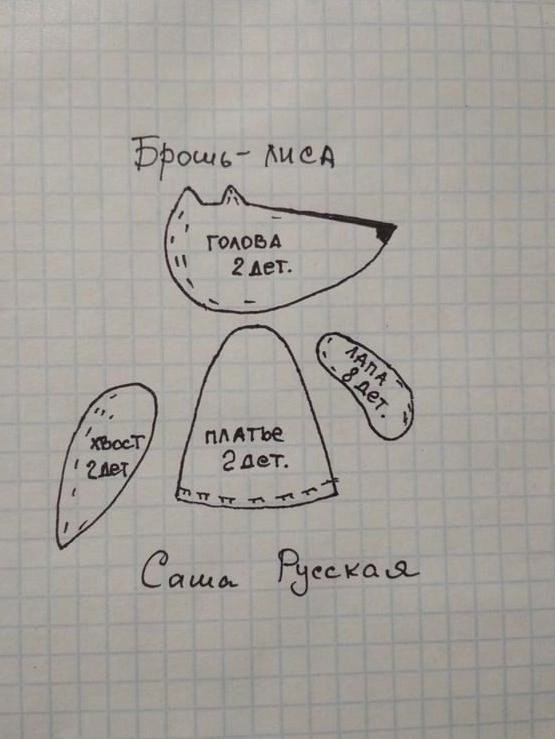 Брошь-лиса
ГОЛОВА
2 дет.
ЛАПА
8 дет.
ХВОСТ
2дет
ПЛАТЬЕ
2 дет.
Саша Русская